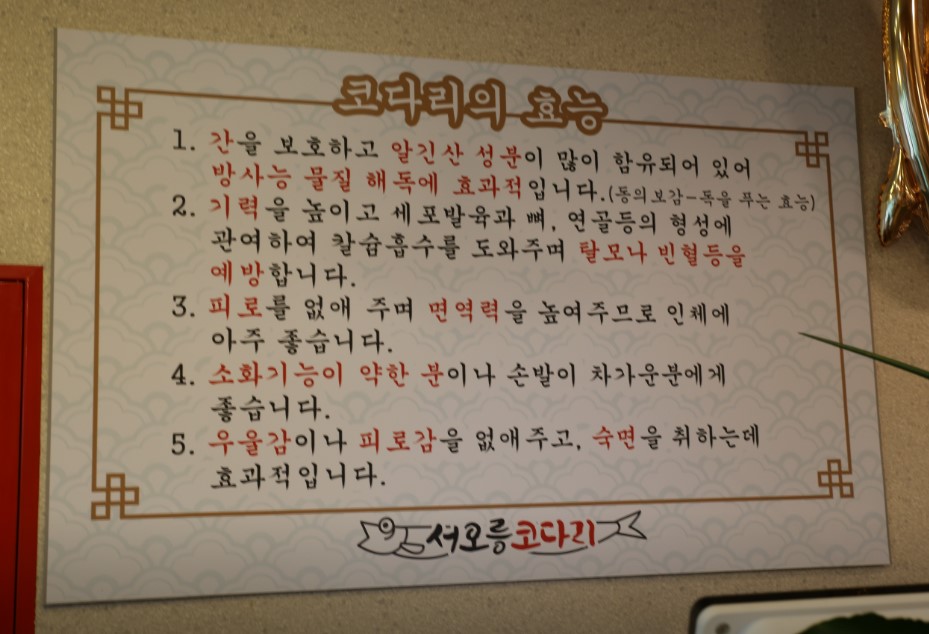 코다리의 효능
1. 간을 보호하고 알긴산 성분이 많이 함유되어 있어
방사능 물질 해독에 효과적입니다.(동의보감-독을 푸는 효능)
2. 기력을 높이고 세포발육과 뼈, 연골등의 형성에
관여하여 칼슘흡수를 도와주며 탈모나 빈혈등을
예방합니다.
3. 피로를 없애 주며 면역력을 높여주므로 인체에
아주 좋습니다.
4. 소화기능이 약한 분이나 손발이 차가운분에게
좋습니다.
5. 우울감이나 피로감을 없애주고, 숙면을 취하는데
효과적입니다.
서오릉코다리